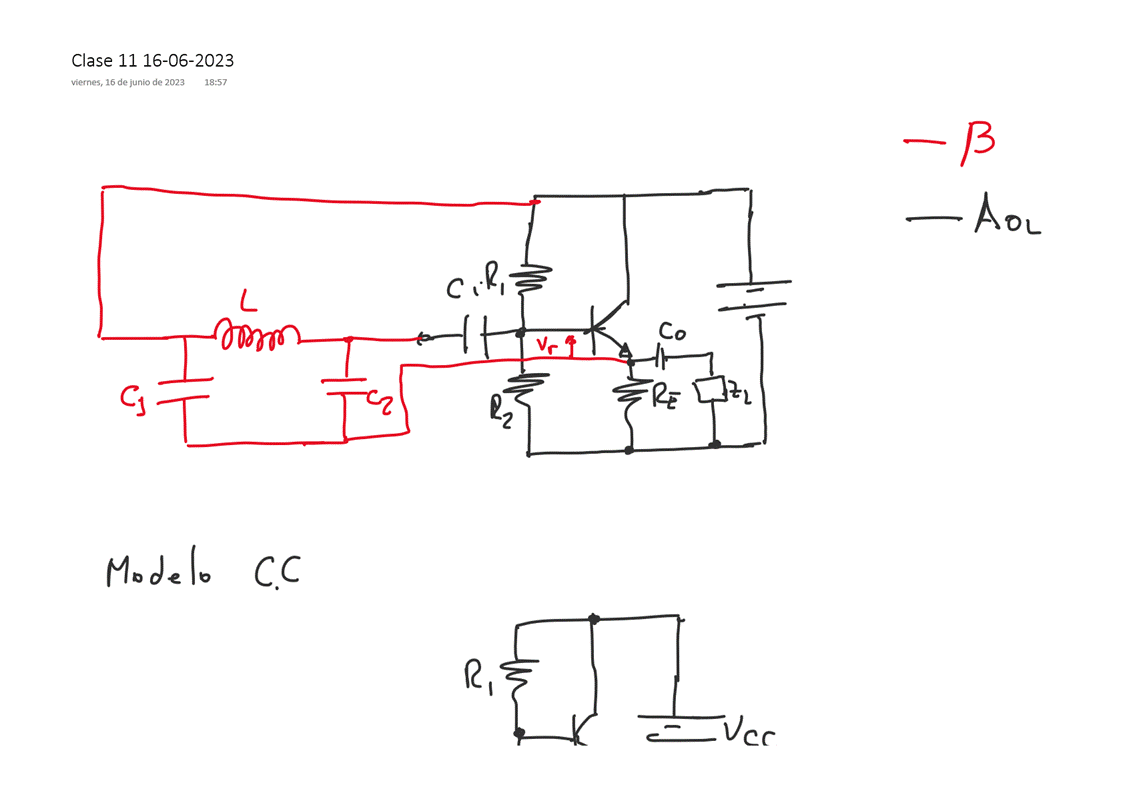 Clase 11 16-06-2023
viernes, 16 de junio de 2023 18:57
β
AOL
L
Ci
R1
C1
C2
vr
R2
Co
RE
ZL
Modelo C.C
R1
VCC